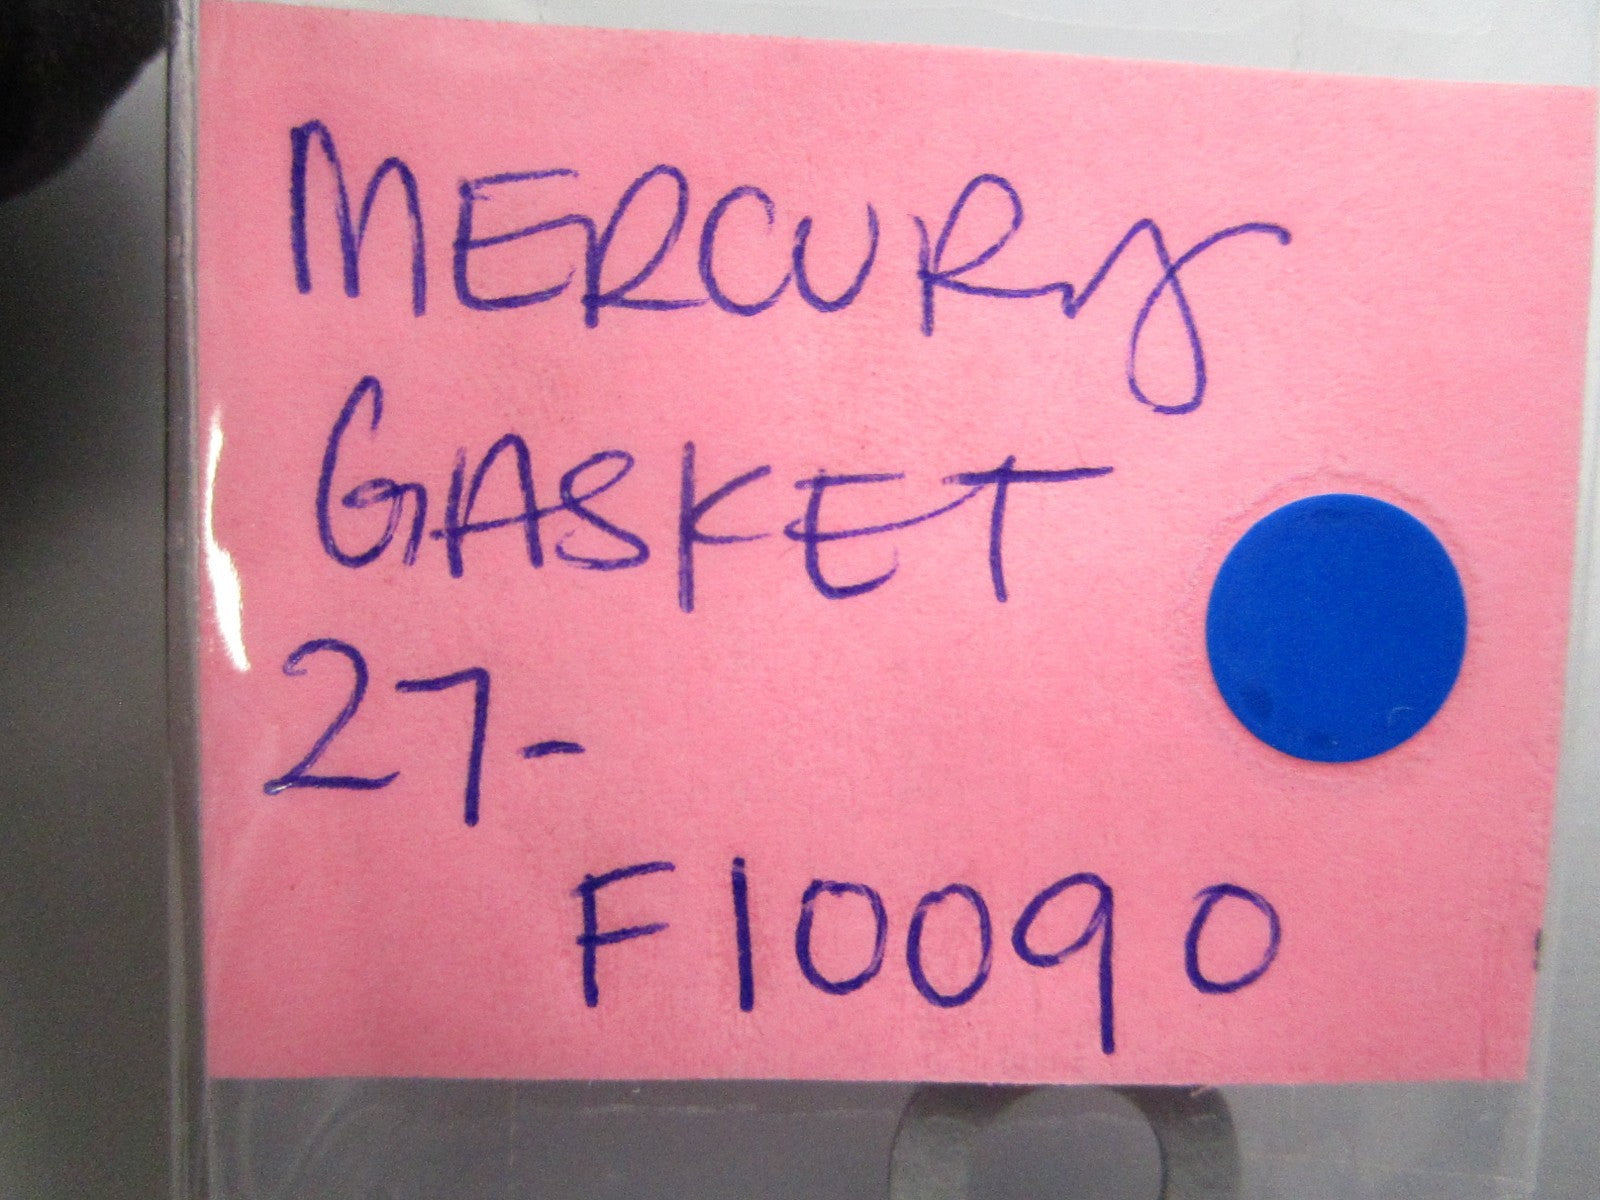 MERCURy
GASKET
27-
F10090